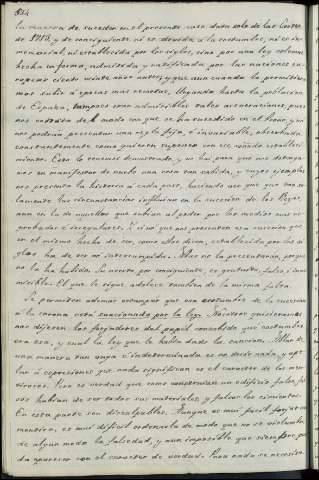 la manera de suceder en el presente caso data solo de las Cortes
de 1713, y de consiguiente ni es debida a la costumbre, ni es in-
memorial, ni establecida por los siglos, sino por una ley solemne
hecha informa, admitida y ratificada por las naciones eu-
ropeas ciento veinte años antes; y que aun cuando la permitiera-
mos subir a epocas mas remotas, llegando hasta la poblacion
de España, tampoco seran admisibles tales aseveraciones, pues
nos consta de modo con que se ha sucedido en el Trono, y no
nos podran presentar una regla fija, e invariable, observada
constantemente como quieren suponer con ese soñado estableci-
miento. Esto lo tenemos demostrado, y no hai para que nos detenga-
mos en manifestar de nuevo una cosa tan sabida, y cuyos ejemplos
nos presenta la historia a cada paso, haciendo ver que solamente
las circunstancias influian en la sucesion de los Reyes,
aun en la de aquellos que subian al poder por los medios mas re-
probados e irregulares. Y si no que nos presenten esa sucesion que
en el mismo hecho de ser, como ellos dicen, establecida por los si-
glos ha de ser no interrumpida. Mas no la presentaran, porque
no la ha habido. Su aserto, por consiguiente, es gratuito, falso, e inad-
misible. El que le sigue adolece tambien de la misma falta.
Se permiten ademas estampar que esa costumbre de la sucesion
a la corona está sancionada por la ley. Nosotros quisieramos
nos dijeran los forjadores del papel concebido que costumbre
era esa, y cual la ley que le habia dado la sancion. Hablar de
una manera tan vaga e indeterminada es no decir nada, y ape-
lar a espresiones que nada significan es el caracter de los men-
tirosos. Eso es verdad que como construian un edificio falso, fal-
sos habian de ser todos sus materiales, y falsos los cimientos.
En esta parte son disculpables. Aunque es mui facil forjar una
mentira, es mui dificil ordenarla de modo que no se vislumbre
de algun modo la falsedad, y aun imposible que siempre pue-
da aparecer con el caracter de verdad. Para nada se necesita